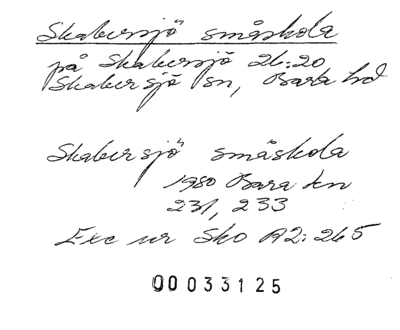 Skabersjö småskola
på Skabersjö 26:20
Skabersjö sn, Bara hd
Skabersjö småskola
1980 Bara kn
231, 233
Exc ur Sko A2:265
00033125